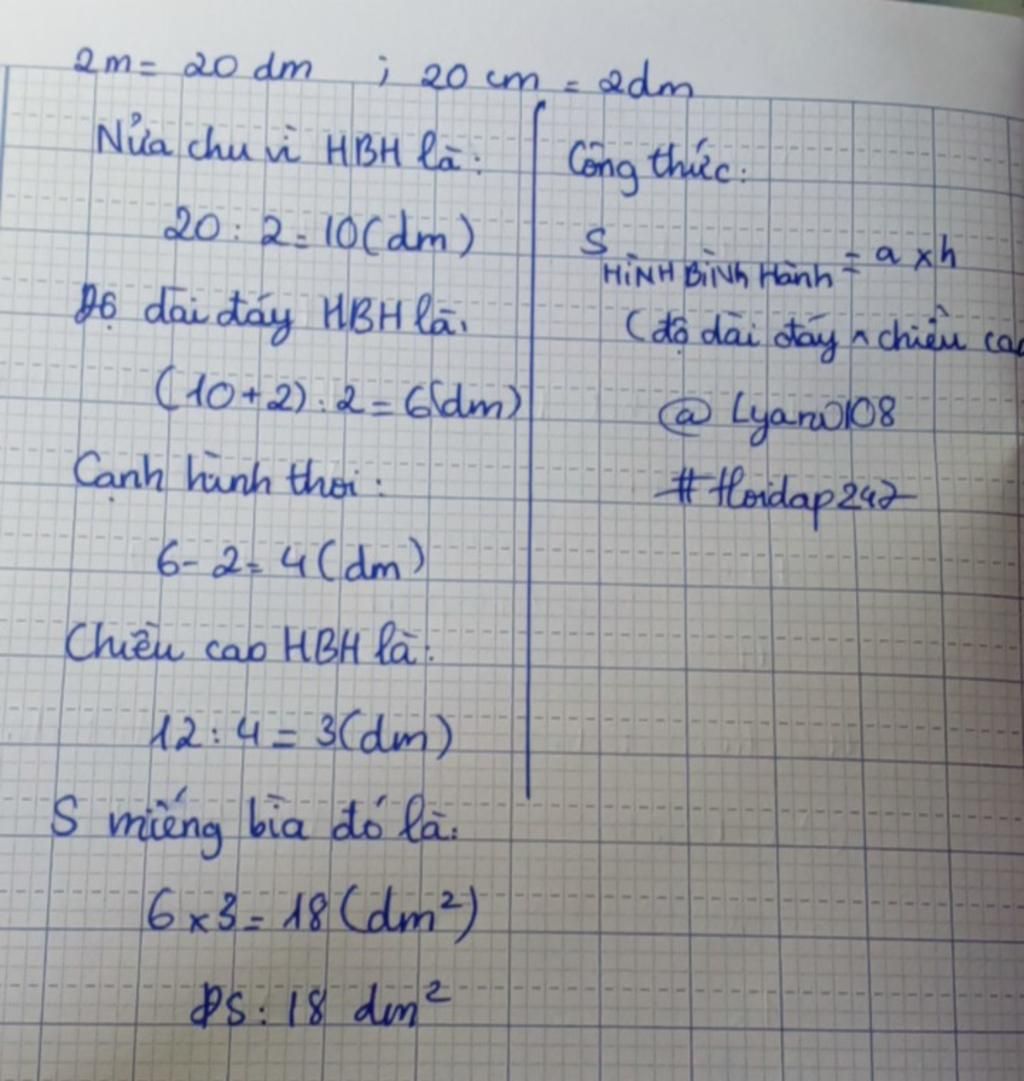 2m = 20 dm ; 20 cm = 2dm
Nửa chu vi HBH là:
20 : 2 = 10(dm)
Độ dài đáy HBH là:
(10+2) : 2 = 6(dm)
Cạnh hình thoi:
6 - 2 = 4 (dm)
Chiều cao HBH là:
12 : 4 = 3(dm)
S miếng bìa đó là:
6 x 3 = 18 (dm²)
ĐS : 18 dm²
Công thức:
S HÌNH BÌNh Hành = a x h
(độ dài đáy x chiều cao
@ Lyanw0108
# Hoidap247